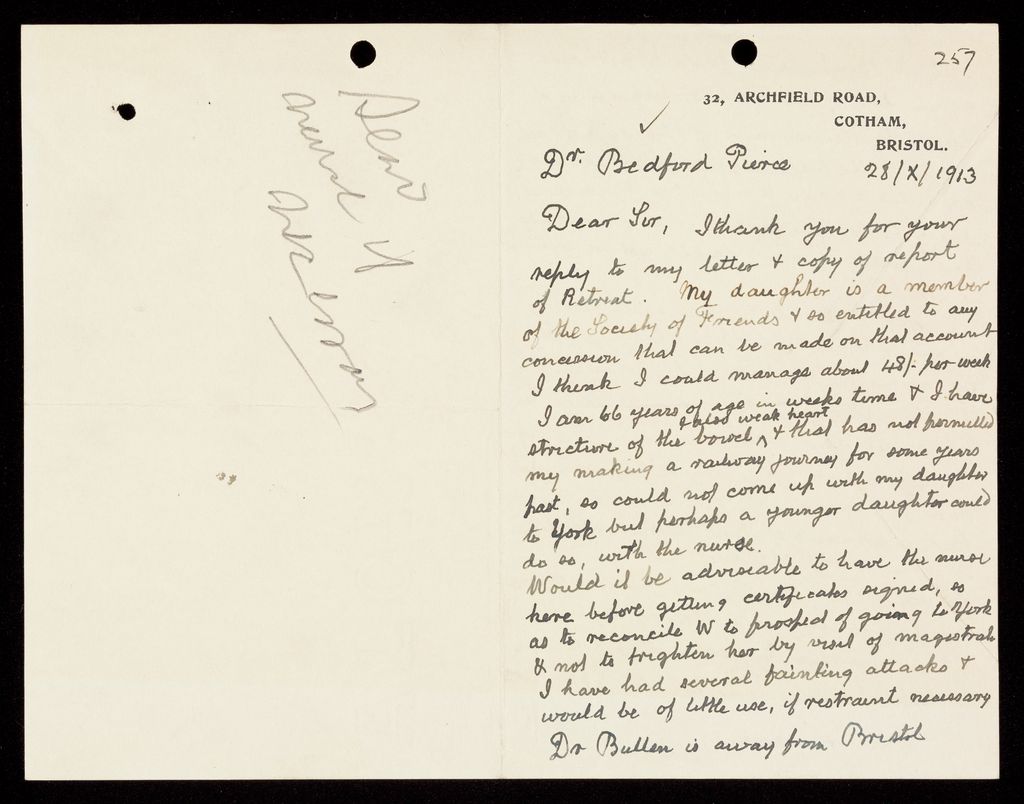 Send
nurse if
257
32, ARCHFIELD ROAD,
COTHAM,
BRISTOL.
28/X/1913
Dr. Bedford Pierce
Dear Sir, I thank you for your
reply to my letter & copy of report
of Retreat. My daughter is a member
of the Society of Friends & so entitled to any
concession that can be made on that account
I think I could manage about 48/- per week
I am 66 years of age in weeks time & I have
& also weak heart
stricture of the bowel ^ & that has not permitted
my making a railway journey for some years
past, so could not come up with my daughter
to York but perhaps a younger daughter could
do so, with the nurse.
Would it be adviseable to have the nurse
here before getting certificates signed, so
as to reconcile W to prospect of going to York
& not to frighten her by visit of magistrate
I have had several fainting attacks &
would be of little use, if restraint necessary
Dr Bullen is away from Bristol